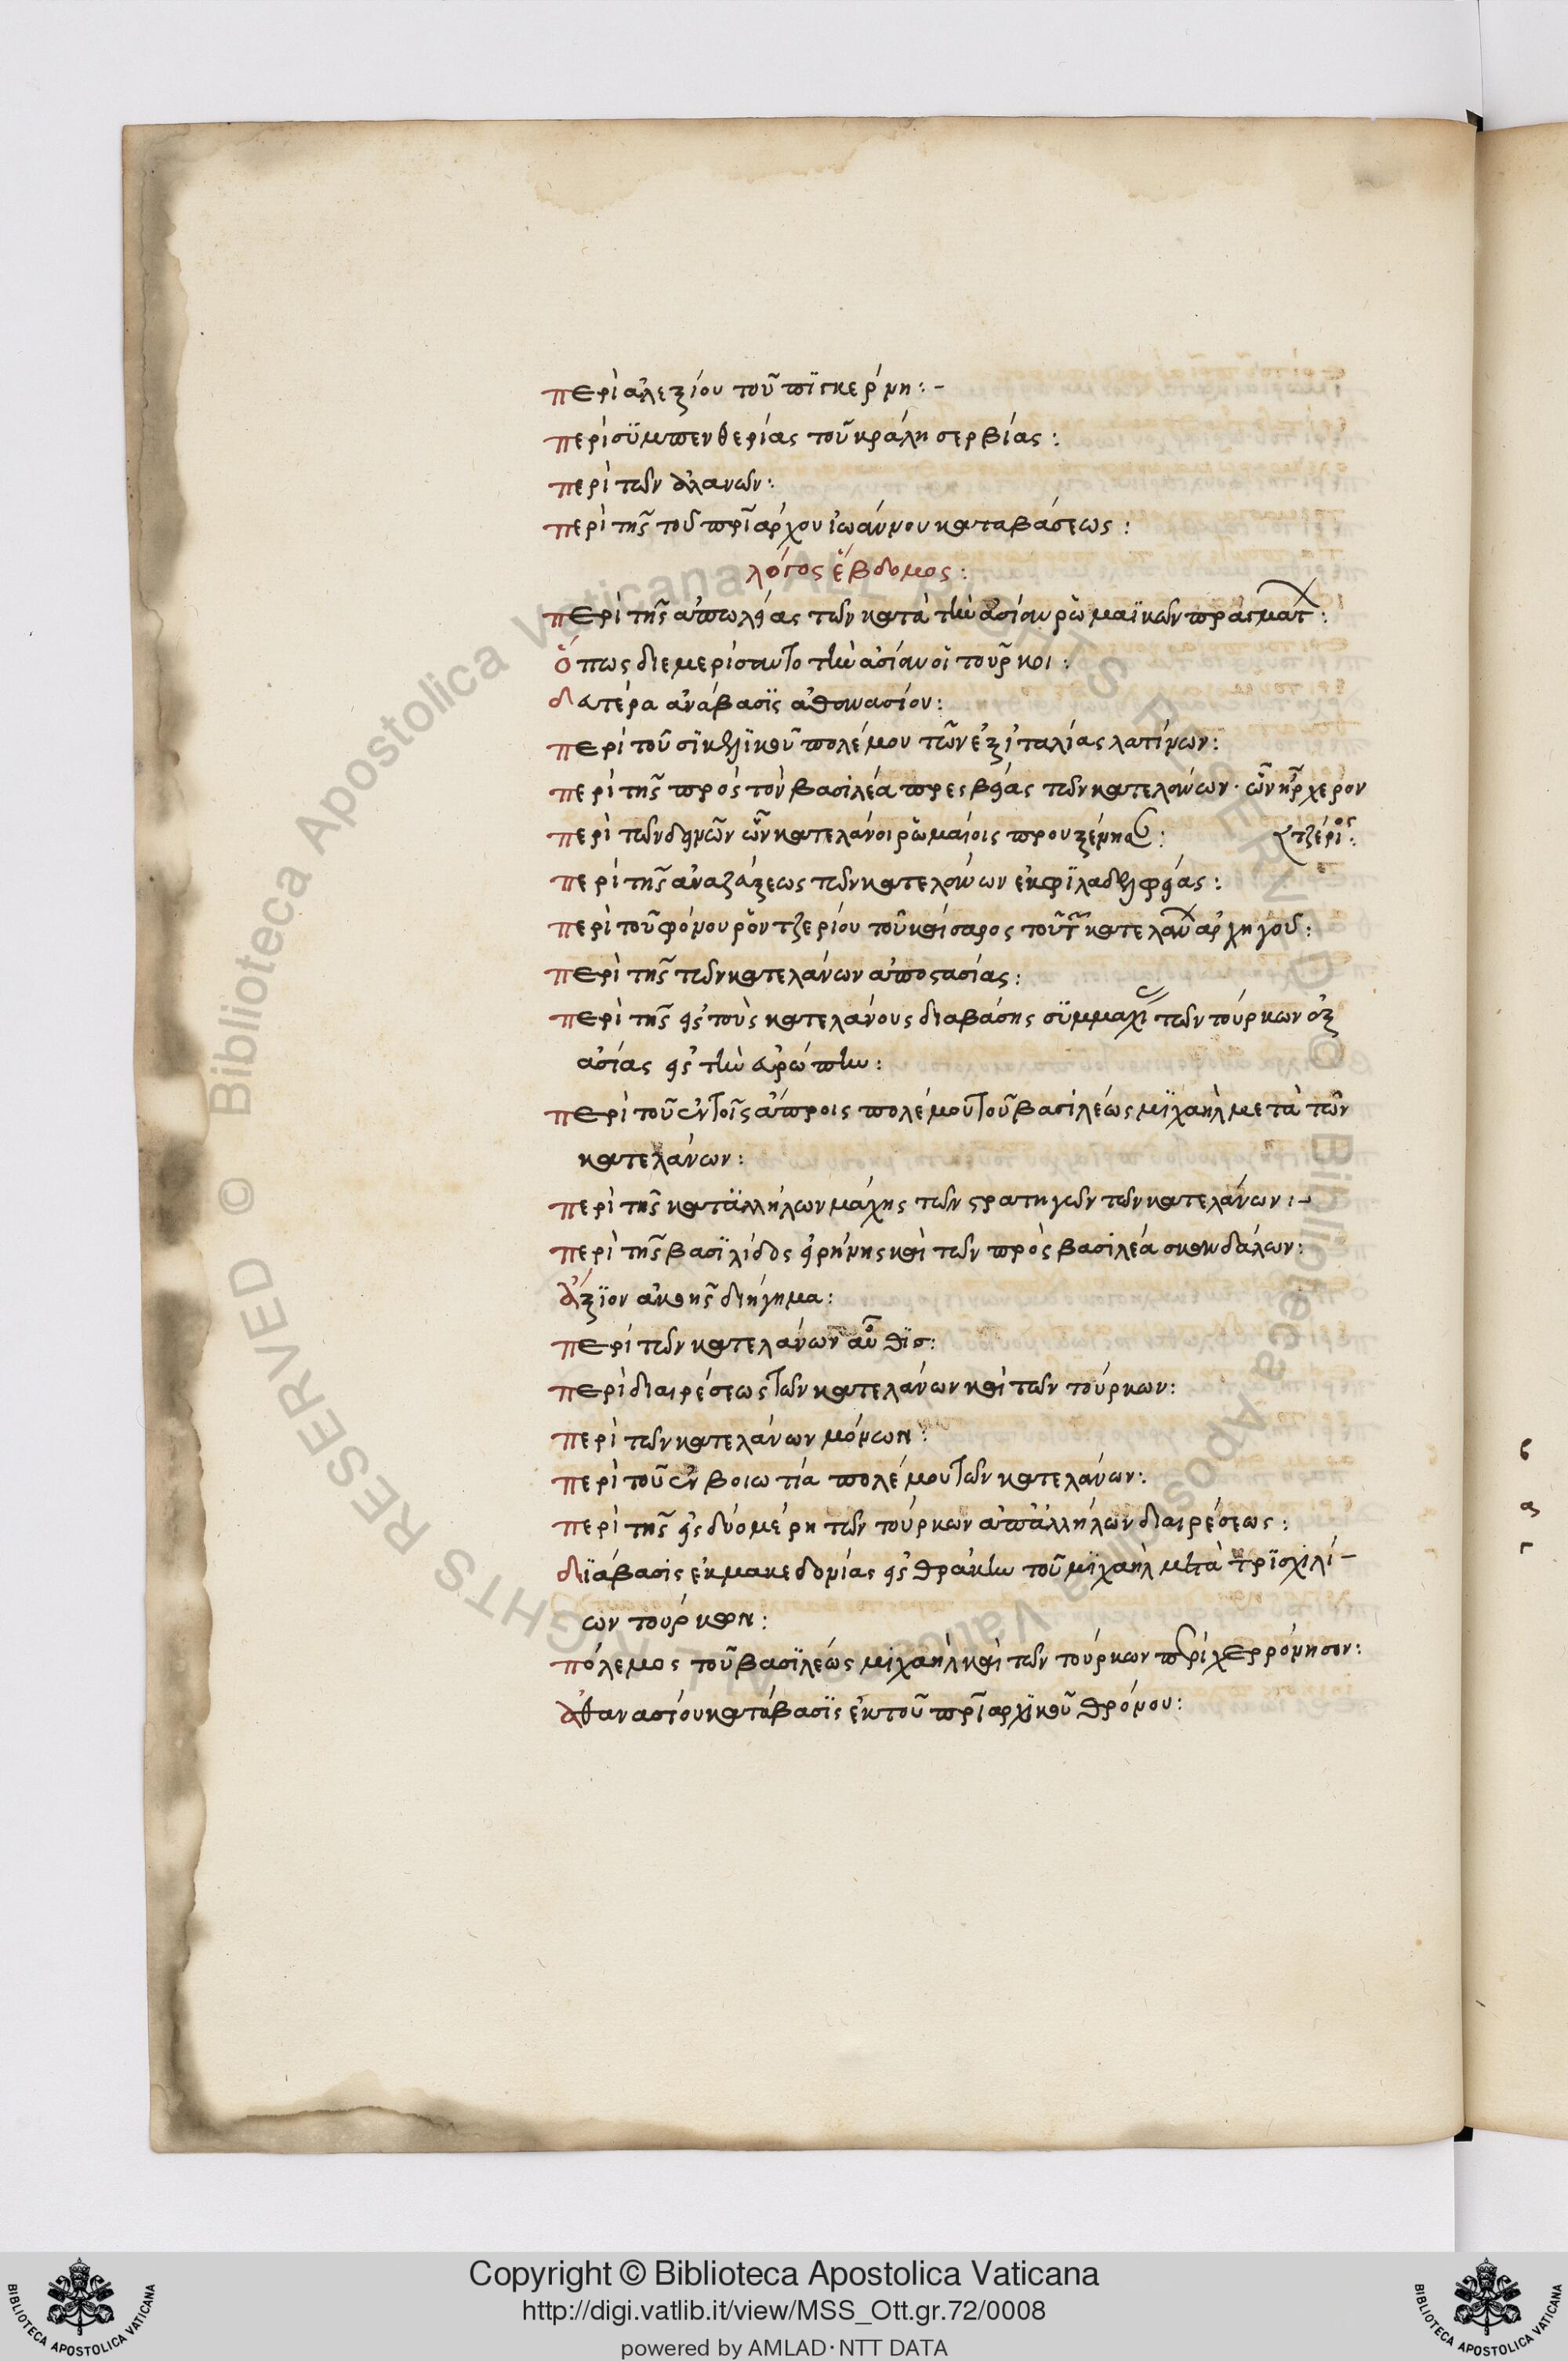 περὶ ἀλεξίου τοῦ πϊγκέρνη:-
περὶ σϋμπενθερίας τοῦ κράλη σερβίας:
περὶ τῶν ἀλανῶν:
περὶ τῆς τοῦ πρϊάρχου ἰωάννου καταβάσεως:
λόγος ἕβδομος:
περὶ τῆς ἀπωλείας τῶν κατὰ τὴν ἀσίαν ρὡμαϊκῶν πραγμάτ:
ὅπως διεμερίσαντο τὴν ἀσίαν οἱ τοῦρκοι:
δευτέρα ἀνάβασϊς ἀθανασίου:
περὶ τοῦ σϊκελϊκοῦ πολέμου τῶν ἐξ ἰταλίας λατίνων:
περὶ τῆς πρὸς τὸν βασιλέα πρεσβείας τῶν κατελάνων· ὧν ἦρχε ρὸν
περὶ τῶν δεινῶν ὧν κατελάνοι ρὡμαίοις προυξένησαν:
τζέριος:
περὶ τῆς ἀναζεύξεως τῶν κατελάνων ἐκ φϊλαδελφείας:
περὶ τοῦ φόνου ρὸν τζερίου τοῦ καίσαρος τοῦ τῶν κατελάν ἀρχηγοῦ:
περὶ τῆς τῶν κατελάνων ἀποστασίας:
περὶ τῆς εἰς τοὺς κατελάνους διαβάσης σϋμμαχί τῶν τούρκων ἐξ
ἀσίας εἰς τὴν εὐρώπην:
περὶ τοῦ ἐν τοῖς ἄπροις πολέμου τοῦ βασιλέως μϊχαὴλ μετὰ τῶν
κατελάνων:
περὶ τῆς κατἀλλήλων μάχης τῶν στρατηγῶν τῶν κατελάνων:-
περὶ τῆς βασϊλίδος εἰρήνης καὶ τῶν πρὸς βασιλέα σκανδάλων:
ἄξϊον ἀκοῆς διήγημα:
περὶ τῶν κατελάνων αὖθϊς:
περὶ διαιρέσεως τῶν κατελάνων καὶ τῶν τούρκων:
περὶ τῶν κατελάνων μόνων:
περὶ τοῦ ἐν βοιωτία πολέμου τῶν κατελάνων:
περὶ τῆς εἰς δύο μέρη τῶν τούρκων ἀπἀλλήλων διαιρέσεως:
δϊάβασις ἐκ μακεδονίας εἰς θράκην τοῦ μϊχαὴλ μετὰ τρϊσχιλί-
ων τούρκων:
πόλεμος τοῦ βασϊλέως μϊχαὴλ καὶ τῶν τούρκων περὶ χερρόνησον:
ἀθανασίου κατάβασϊς ἐκ τοῦ πρϊαρχϊκοῦ θρόνου:
Copyright © Biblioteca Apostolica Vaticana
http://digi.vatlib.it/view/MSS_Ott.gr.72/0008
powered by AMLAD·NTT DATA